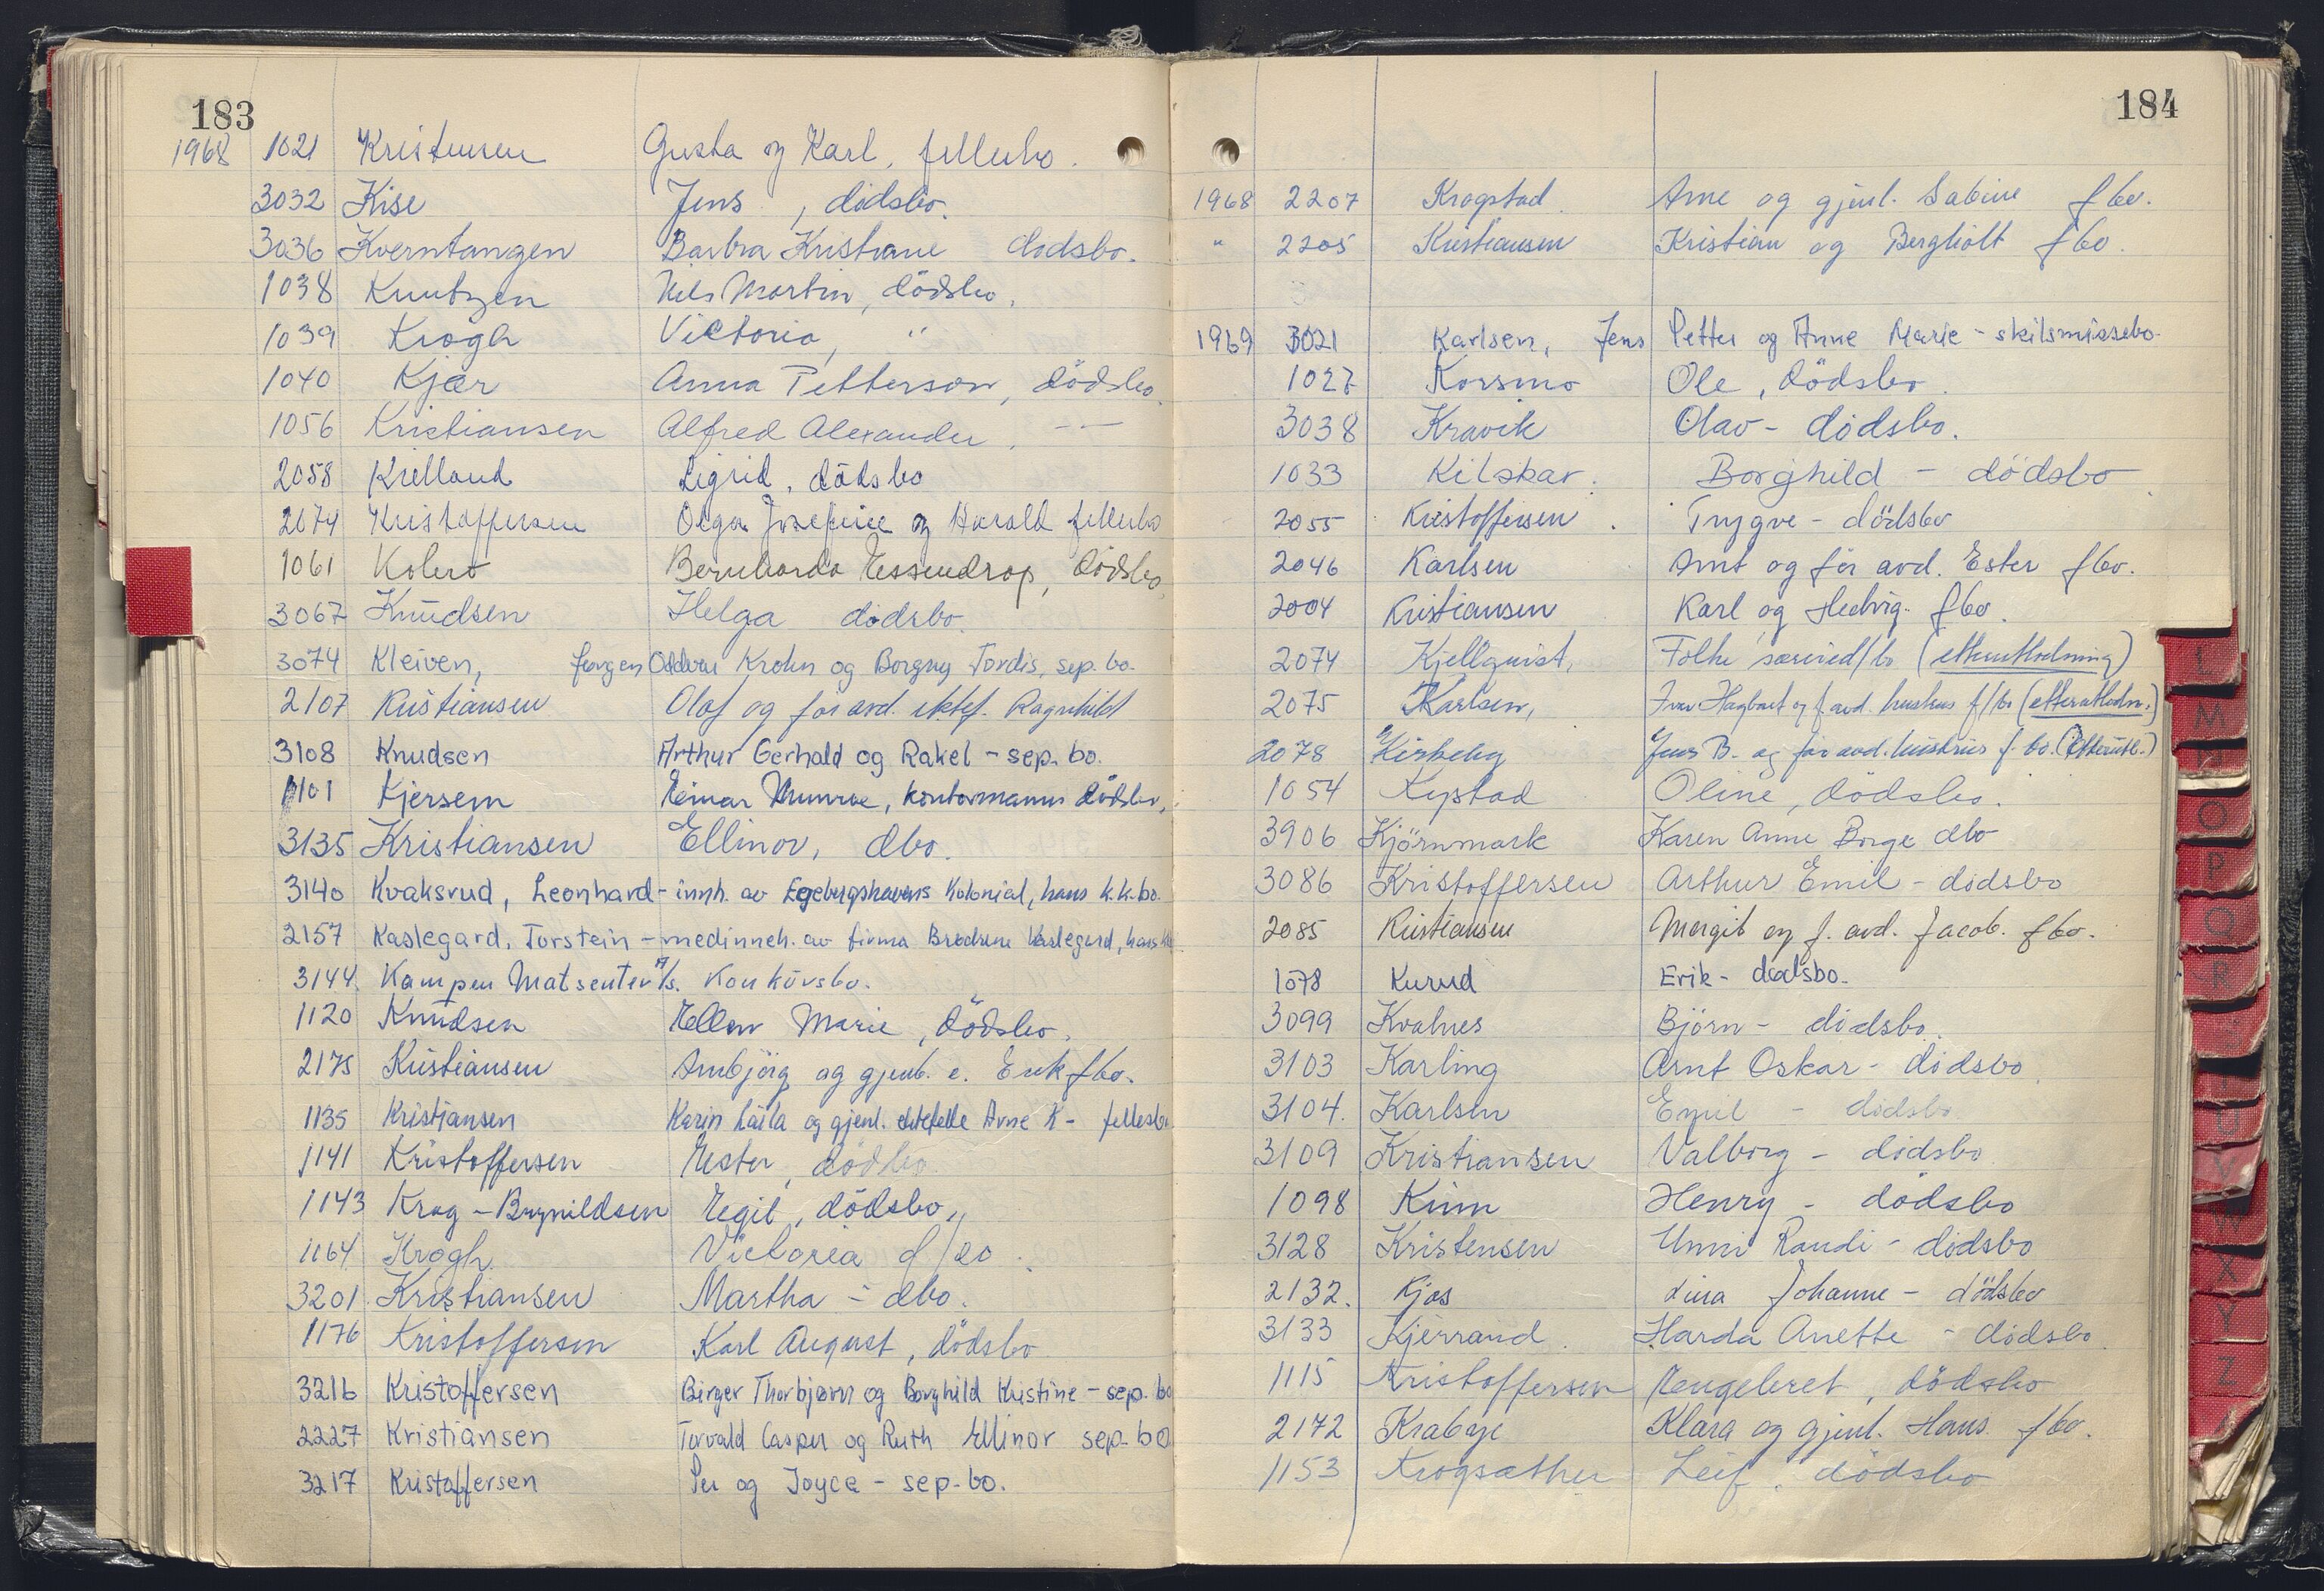 183
1968 1021 Kristensen Gusta og Karl, fellesbo.
3032 Kise Jens, dödsbo.
3036 Kverntangen Barbra Kristiane dödsbo.
1038 Knutzen Nils Martin, dödsbo.
1039 Krogh Victoria, "
1040 Kjær Anna Petterson, dödsbo.
1056 Kristiansen Alfred Alexander, —"—
2058 Kielland Sigrid, dödsbo
2074 Kristoffersen Olga Josefine og Harald fellesbo
1061 Kolerö Bernharda Essendrop, dödsbo
3067 Knudsen Helga dödsbo.
3074 Kleiven, Jørgen Oddvar Krohn og Borgny Tordis, sep. bo.
2107 Kristiansen Olaf og for avd. ektef. Ragnhild
3108 Knudsen Arthur Gerhald og Rakel - sep. bo.
1101 Kjersem Einar Munroe, kontormanns dödsbo,
3135 Kristiansen Ellinor, dbo.
3140 Kvaksrud, Leonhard - innh. av Egebergshavens Kolonial, hans k.k.bo.
2157 Kaslegard, Torstein - medinneh. av firma Brødrene Kaslegard, hans
3144. Kampen Matsenter A/s. Konkursbo.
1120 Knudsen Ellen Marie, dödsbo.
2175 Kristiansen Arnbjörg og gjenl. e. Erik fbo.
1135 Kristiansen Karin Laila og gjenl. ektefelle Arne K - fellesbo
1141 Kristoffersen Ester, dödsbo
1143 Krag - Brynildsen Egil, dödsbo,
1164 Krogh Victoria d/bo.
3201 Kristiansen Martha - dbo.
1176 Kristoffersen Karl August, dödsbo
3216 Kristoffersen Birger Thorbjørn og Borghild Kristine - sep. bo
2227 Kristiansen Torvald Casper og Ruth Ellinor sep. bo
3217 Kristoffersen Per og Joyce - sep. bo.
184
1968 2207 Krogstad Arne og gjenl. Sabine fbo.
" 2205 Kristiansen Kristian og Bergliott fbo.
1969 3021 Karlsen, Jens Petter og Anne Marie - skilsmissebo.
1027 Korsmo Ole, dödsbo.
3038 Kravik Olav - dödsbo.
1033 Kilskar. Borghild - dödsbo
2055 Kristoffersen. Trygve - dödsbo
2046 Karlsen Arnt og for avd. Ester fbo.
2004 Kristiansen Karl og Hedvig. fbo.
2074 Kjellquist, Folke særeied/bo (etterutlodning)
2075 Karlsen, Ivar Hagbart og f. avd. hustrus f/bo (etterutlodn.)
2078 Kirkeby Jens B. og for avd. hustrus f. bo. (etterutl.)
1054 Kystad Oline, dödsbo.
3906 Kjörnmark Karen Anne Borge dbo
3086 Kristoffersen Arthur Emil - dödsbo
2085 Kristiansen Margit og f. avd. Jacob. fbo.
1078 Kurud Erik - dødsbo.
3099 Kvalnes Björn - dödsbo.
3103 Karling Arnt Oskar - dödsbo
3104. Karlsen Emil - dödsbo
3109 Kristiansen Valborg - dödsbo
1098 Kinn Henry - dödsbo
3128 Kristensen Unni Randi - dödsbo
2132. Kjos Lina Johanne - dödsbo
3133 Kjerrand. Harda Anette - dödsbo
1115 Kristoffersen Engebret, dödsbo
2172 Krabye Klara og gjenl. Hans. fbo.
1153 Krogsæther Leif, dödsbo
L
M
N
O
P
Q
R
T
U
V
W
X
Y
Z